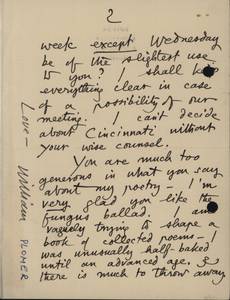 2
week except Wednesday
be of the slightest use
to you? I shall keep
everything clear in case
of a possibility of our
meeting. I can't decide
about Cincinnati without
your wise counsel.
You are much too
generous in what you say
about my poetry – I'm
very glad you like the
fungus ballad. I am
vaguely trying to shape a
book of collected poems – I
was unusually half-baked
until an advanced age. &
there is much to throw away
Love – William
PLOMER